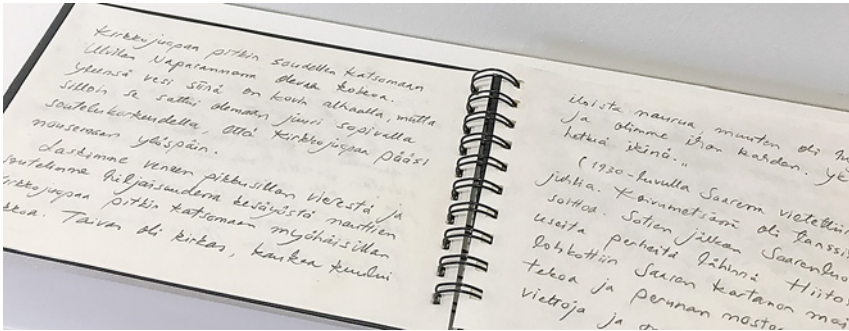 Kirkkojuopaa pitkin soudellen katsomaan
Ulvilan Naparannana olevaa kokkoa.
Yleensä vesi siinä on kovin alhaalla, mutta
silloin se sattui olemaan juuri sopivalla
soutelukorkeudella, että Kirkkojuopaa pääsi
nousemaan yläspäin.
Laskimme veneen pikkusillan vierestä ja
soutelimme hiljaisuudessa kesäyöstä nauttien
kirkkojuopaa pitkin katsomaan myöhäisillan
kokkoa. Taivas oli kirkas, kaukaa kuului
iloista naurua, muuten oli
ja olimme ihan kahden.
hetkiä ikinä..
(1930-luvulla Saaren vietettiin
juhlia. Koivumetsässä oli tanssi
soittoa. Sotien jälkeen
useita perheitä lähinnä
lohkottiin Saaren kartanon
tekoa ja perunan
viettoja ja